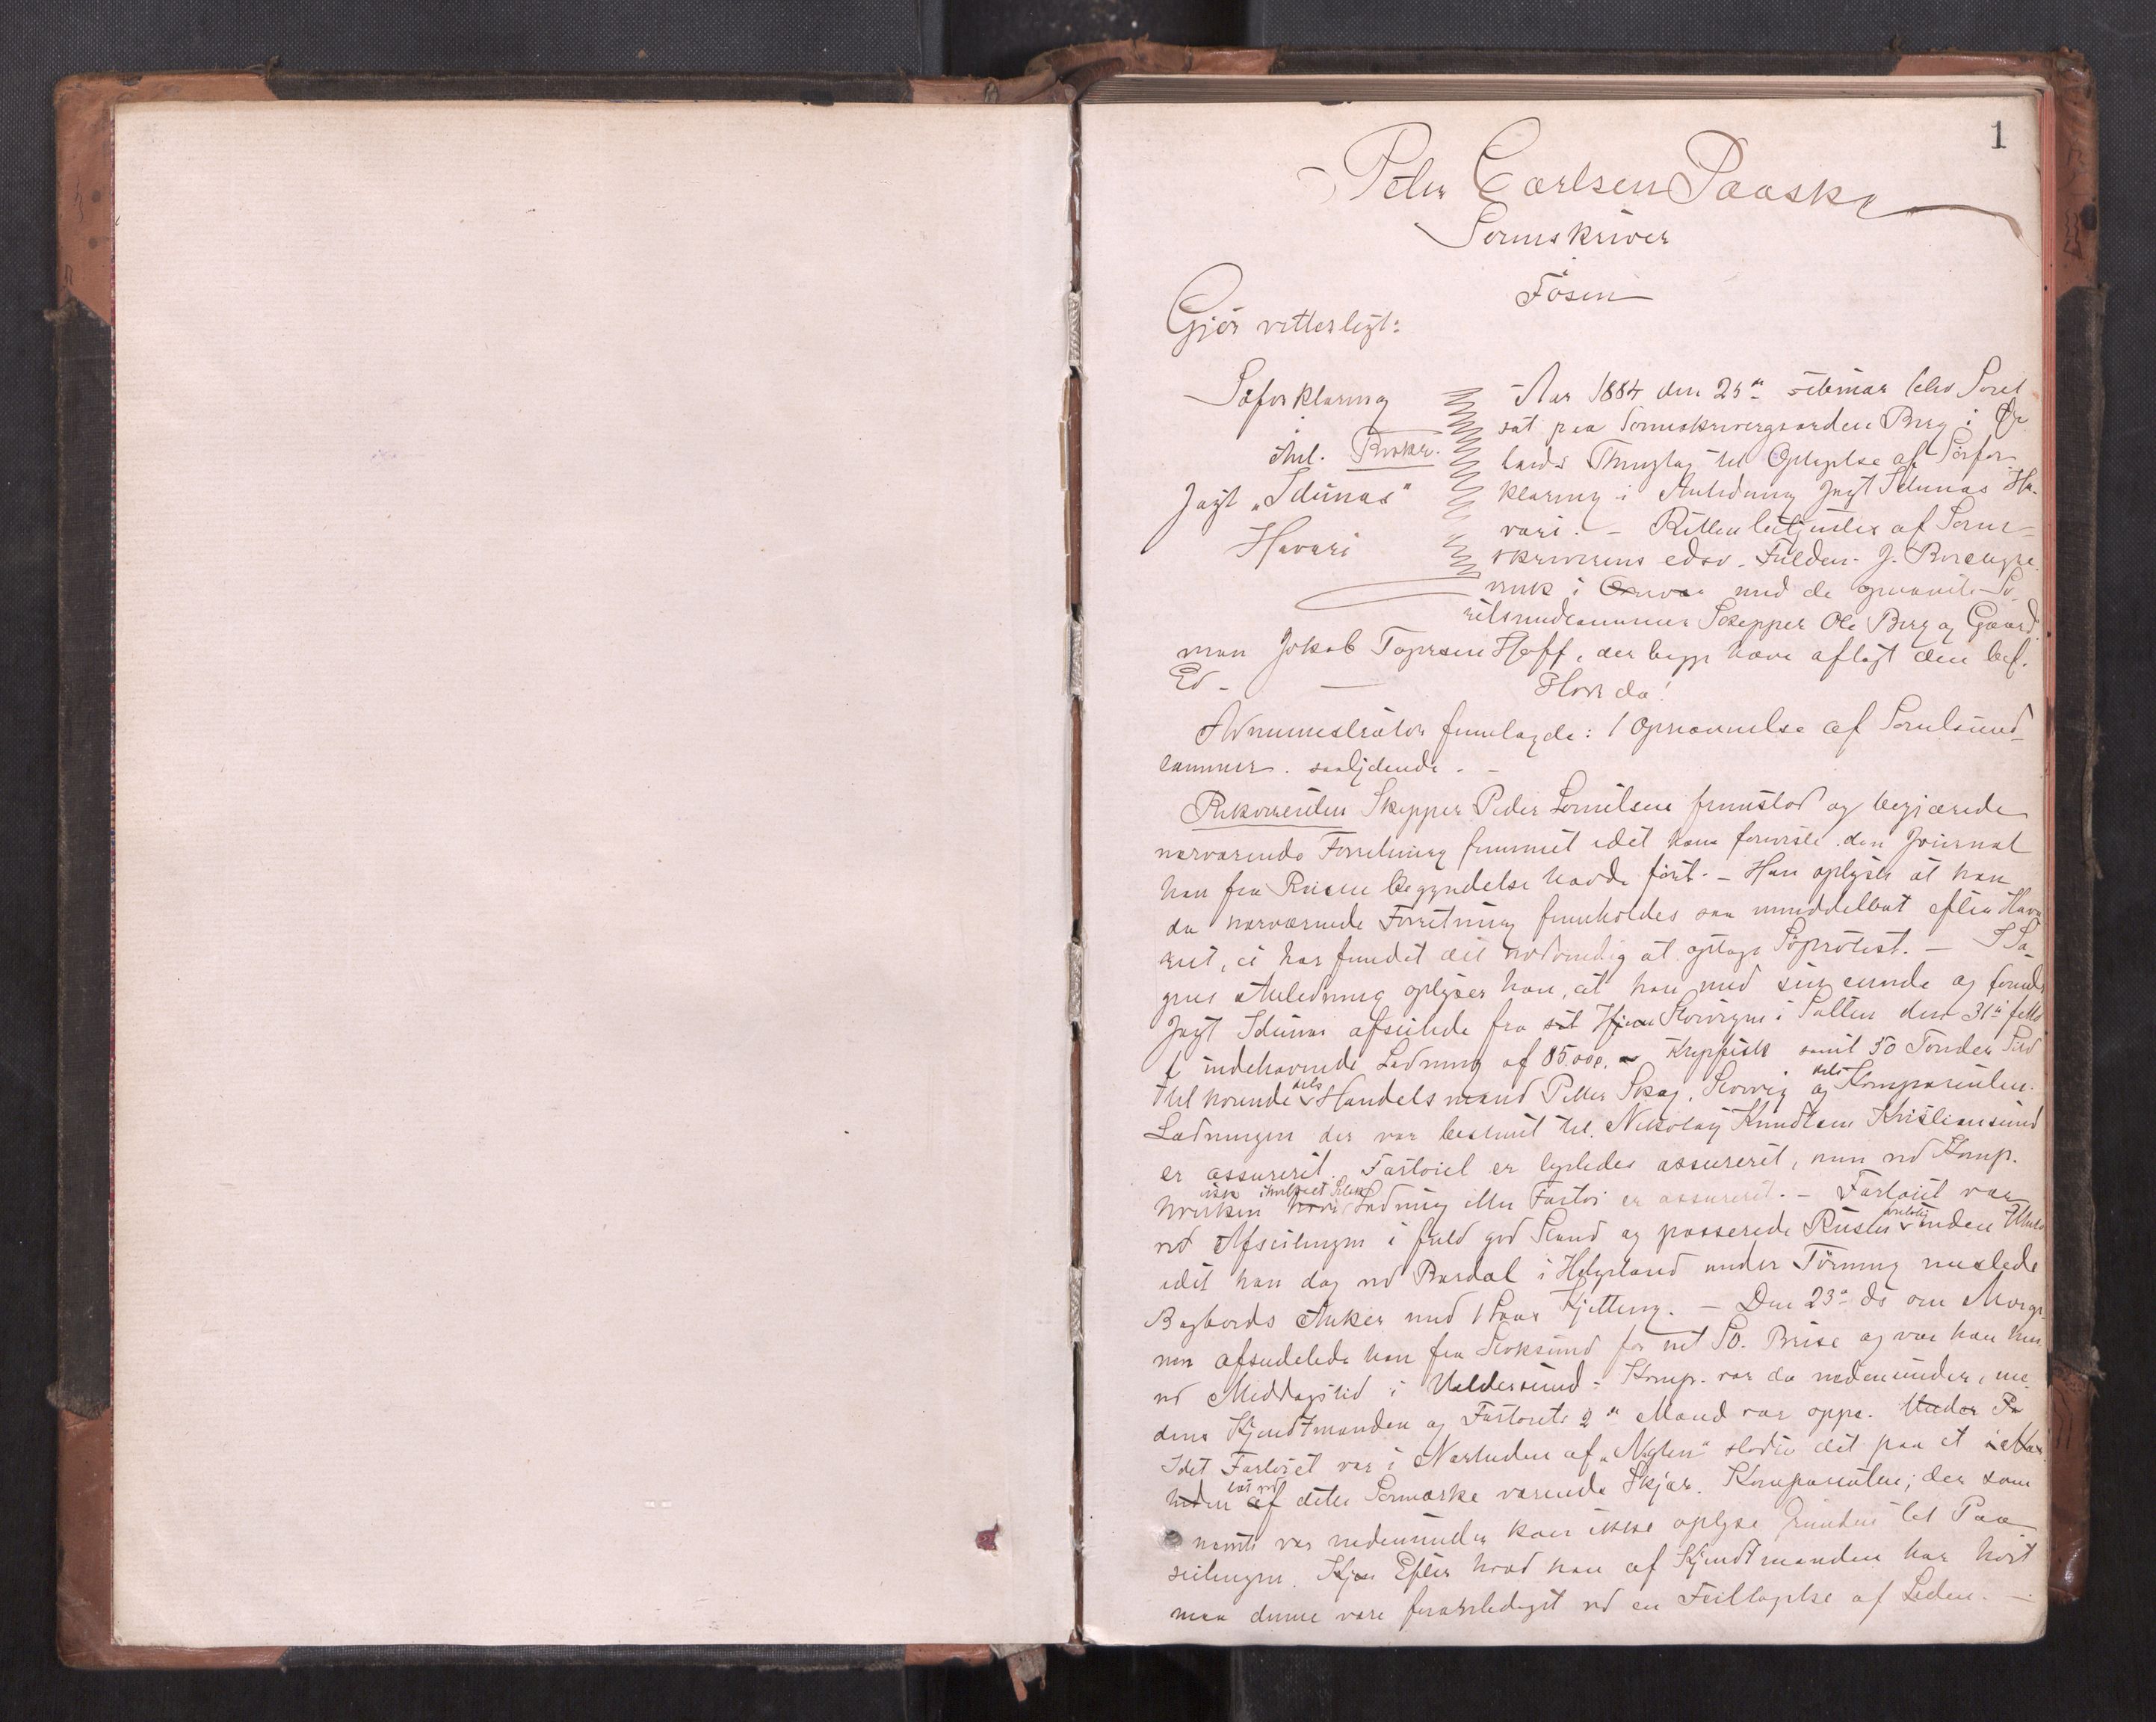 1
Peter Carlsen Paaske
Sorenskriver
Fosen
Gjør vitterligt:
Søforklaring
i Anl.
Jagt „Idunas"
Havari
Aar 1884 den 25de Februar blev Søret
sat paa Sorenskrivergaarden Berg i Ør
lands Thinglag til Optagelse af Søfor
klaring i Anledning Jagt Idunas Ha-
vari. – Retten betjentes af Soren-
skriverens edsv. Fuldm. J.
med de opnævnte Sø
retsmeddommer Skipper Ole Berg og Gaard
man Jakob Hoff, der begge have aflagt den bef.
Ed. –
Hvor da!
Administrator fremlagde: 1 Opnævnelse af Søretsmed-
dommer. saalydende. –
Rekvirenten Skipper Peder fremstod og begjærede
nærværende Forretning fremmet idet han foreviste den Journal
han fra Reisens Begyndelse havde ført. – Han oplyste at han
da nærværende Forretning fremholdes saa umiddelbart efter Hava
riet, ei har fundet det nødvendig at optage Søprotest. – I Sa
gens Anledning oplyser han, at han med sin eiende og førende
Jagt Idunas afseilede fra sit Hjem i Salten den 31te
indehavende Ladning af 85.000. Klipfisk samt 50 Tønder Sild
tilhørende dels Handelsmand Petter Skag, og dels Komparenten.
Ladningen der var bestemt til Nikolay Knudtzon Kristiansund
er assureret. Fartøiet er ligeledes assureret, men ved Komp.
hverken Ladning eller Fartøi er assureret. – Fartøiet var
ved Afseilingen i fuld god Stand og passerede Reisen inden Uheld
idet han dog ved Bardal i Helgeland under Tørning mistede
Bagbords Anker med 1 Kjetting. – Den 23de ds om Morge-
nen afseilede han fra Stoksund for ret SO. Brise og var han kun
ved Middagstid i Valdersund – Komp. var da nedenunder, me-
dens Kjendtmanden og Fartøiets 2de Mand var oppe.
Idet Fartøiet var i Nærheden af „Neglen" stødte det paa et
af dette Sømærke værende Skjær. Komparenten, der som
nævnt var nedenunder kan ikke oplyse Grunden til Paa
seilingen. Efter hvad han af Kjendtmanden har hørt
maa denne være foranlediget ved en Feiltagelse af Leden. –